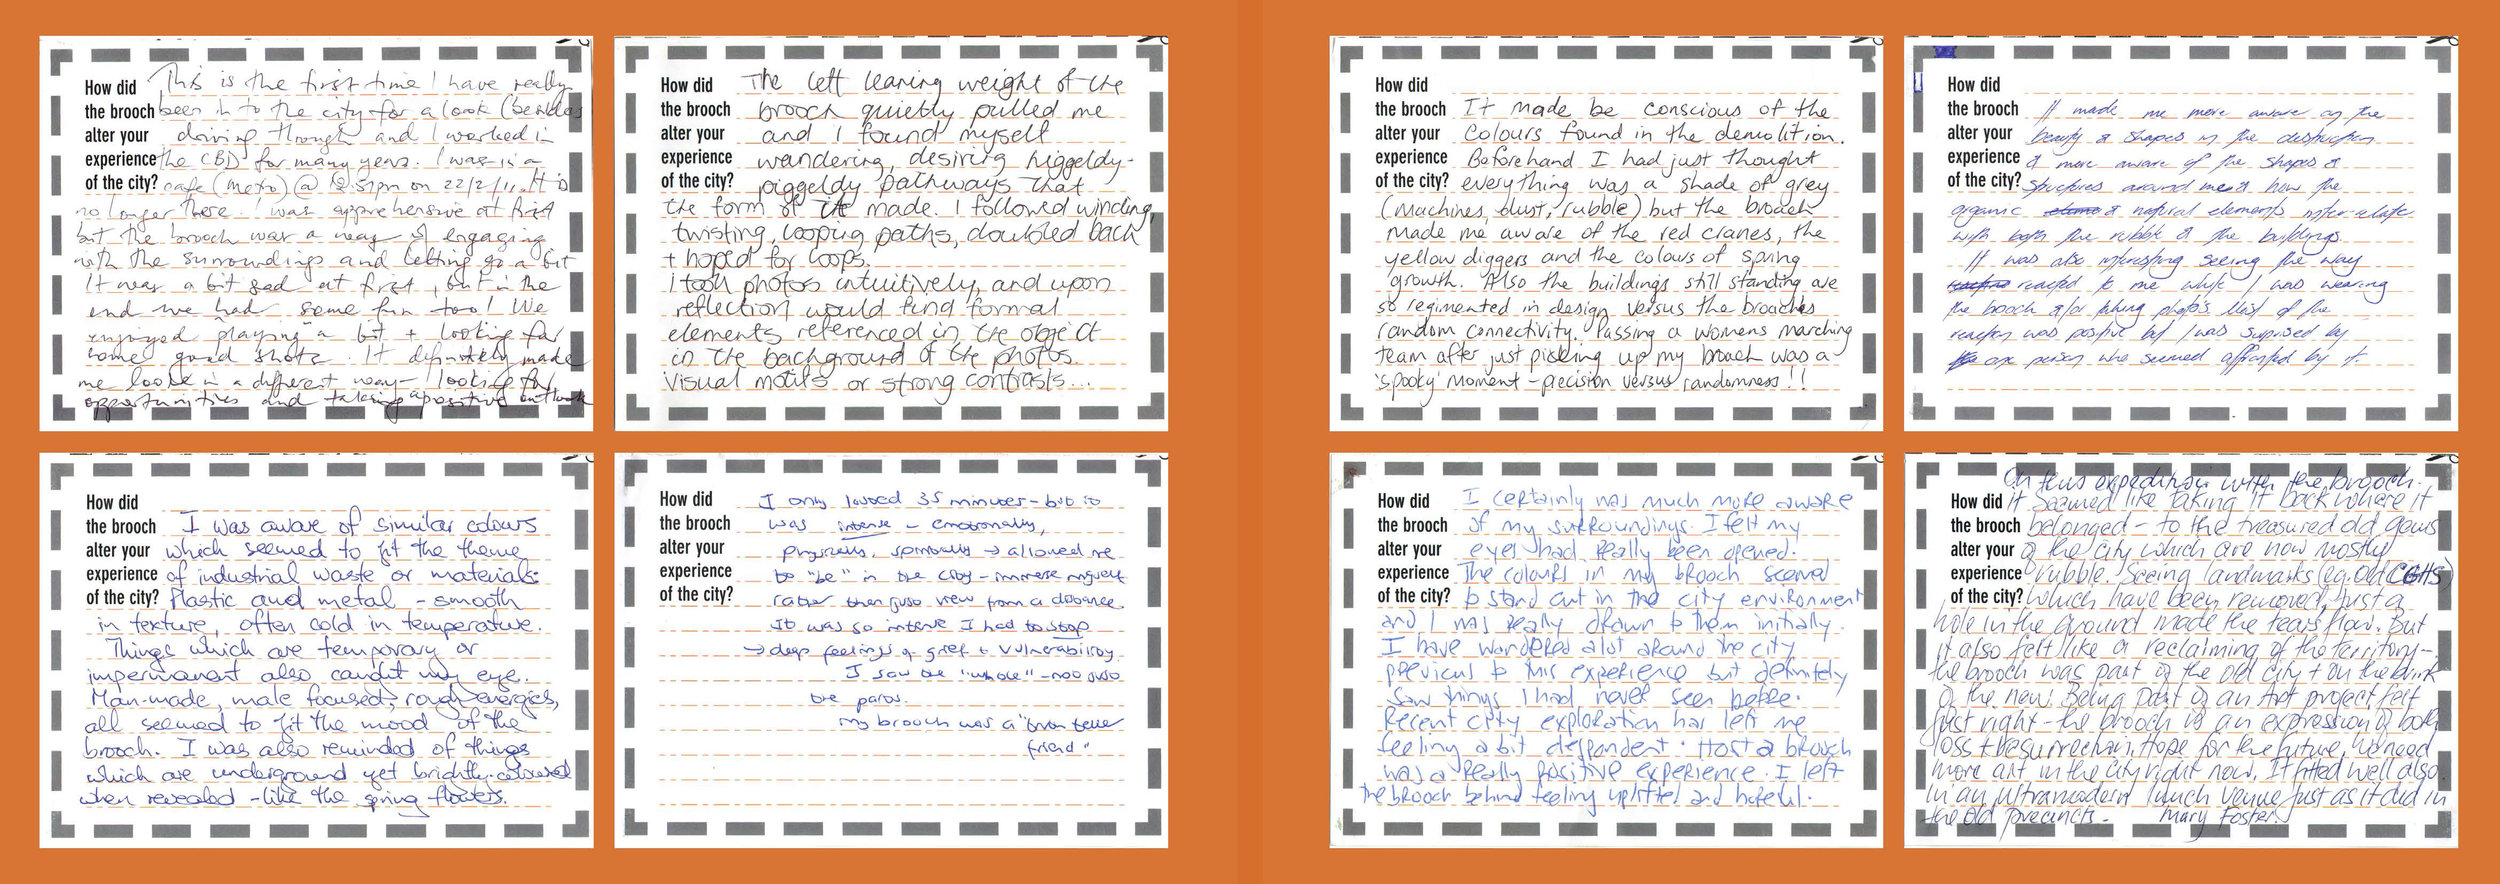 How did
the brooch
alter your
experience
of the city?
This is the first time I have really
been in to the city for a look (besides
driving through and I worked in
the CBD for many years. I was in a
cafe (Metro) @ 12.51pm on 22/2/11. It is
no longer there. I was apprehensive at first
but the brooch was a way of engaging
with the surroundings and letting go a bit
It was a bit sad at first, but in the
end we had some fun too! We
enjoyed playing a bit + looking for
some good shots. It definitely made
me look in a different way - looking for
opportunities and taking a positive outlook
How did
the brooch
alter your
experience
of the city?
The left leaning weight of the
brooch quietly pulled me
and I found myself
wandering, desiring higgeldy-
piggeldy pathways that
the form of it made. I followed winding,
twisting, looping paths, doubled back
+ hoped for loops.
I took photos intuitively, and upon
reflection would find formal
elements referenced in the object
in the background of the photos.
Visual motifs or strong contrasts...
How did
the brooch
alter your
experience
of the city?
I was aware of similar colours
which seemed to fit the theme
of industrial waste or materials:
Plastic and metal - smooth
in texture, often cold in temperature.
Things which are temporary or
impermanent also caught my eye.
Man-made, male focused, rough energies,
all seemed to fit the mood of the
brooch. I was also reminded of things
which are underground yet brightly-coloured
when revealed - like the spring flowers.
How did
the brooch
alter your
experience
of the city?
I only lasted 35 minutes - but it
was intense - emotionally,
physically, spiritually → allowed me
to "be" in the city - immerse myself
rather then just view from a distance
It was so intense I had to stop
→ deep feelings of grief + vulnerability.
I saw the "whole" - not just
the parts.
My brooch was a "brave little
friend"
How did
the brooch
alter your
experience
of the city?
It made be conscious of the
colours found in the demolition.
Beforehand I had just thought
everything was a shade of grey
(machines, dust, rubble) but the brooch
made me aware of the red cranes, the
yellow diggers and the colours of spring
growth. Also the buildings still standing are
so regimented in design versus the broaches
random connectivity. Passing a womens marching
team after just picking up my broach was a
'spooky' moment - precision versus randomness!!
How did
the brooch
alter your
experience
of the city?
It made me more aware of the
beauty & shapes in the destruction
& more aware of the shapes &
structures around me & how the
organic & natural elements inter-relate
with both the rubble & the buildings.
It was also interesting seeing the way
reacted to me while I was wearing
the brooch &/or taking photos. Most of the
reaction was positive but I was suprised by
one person who seemed affronted by it.
How did
the brooch
alter your
experience
of the city?
I certainly was much more aware
of my surroundings. I felt my
eyes had really been opened.
The colours in my brooch seemed
to stand out in the city environment
and I was really drawn to them initially.
I have wandered alot around the city
previous to this experience but definitely
saw things I had never seen before.
Recent city exploration has left me
feeling a bit despondent. Host a brooch
was a really positive experience. I left
the brooch behind feeling uplifted and hopeful.
How did
the brooch
alter your
experience
of the city?
On this expedition with the brooch.
it seemed like taking it back where it
belonged - to the treasured old gems
of the city which are now mostly
rubble. Seeing landmarks (eg. Old CGHS)
which have been removed, just a
hole in the ground made the tears flow. But
it also felt like a reclaiming of the territory -
the brooch was part of the old city + on the brink
of the new. Being part of an Art project felt
just right - the brooch is an expression of both
loss + resurrection. Hope for the future, we need
more art in the city right now. It fitted well also
in an ultramodern lunch venue just as it did in
the old precincts - Mary Foster.